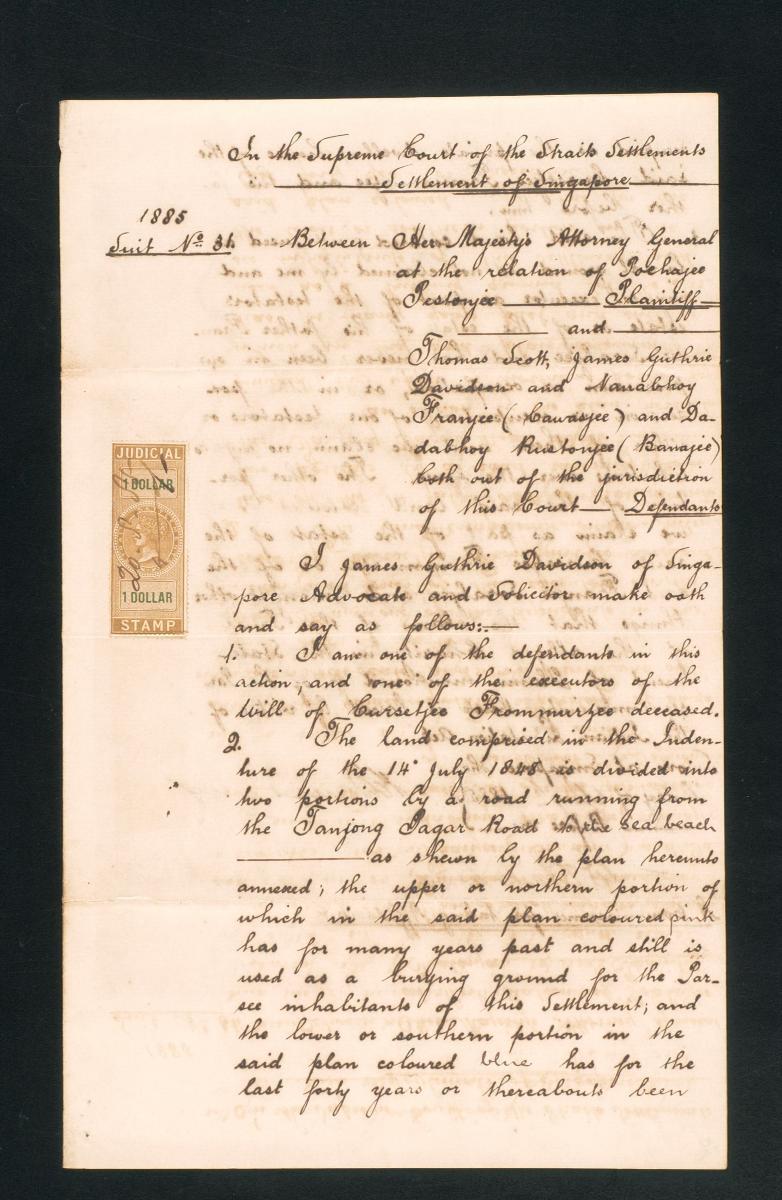 In the Supreme Court of the Straits Settlements
Settlement of Singapore
1885
Suit No. 31. Between Her Majesty's Attorney General
at the relation of Pochajee
Pestonjee Plaintiff
and
Thomas Scott, James Guthrie
Davidson and Narrabhoy
Framjee (Cawasjee) and Da-
dabhoy Rustonjee (Banajee)
both out of the jurisdiction
of this Court Defendants
I James Guthrie Davidson of Singa-
pore Advocate and Solicitor make oath
and say as follows:—
1. I am one of the defendants in this
action, and one of the executors of the
Will of Cursetjee Frommurzee deceased.
2. The land comprised in the Inden-
ture of the 14 July 1848 is divided into
two portions by a road running from
the Tanjong Pagar Road to the sea beach
as shewn by the plan hereunto
annexed; the upper or northern portion of
which in the said plan coloured pink
has for many years past and still is
used as a burying ground for the Par-
see inhabitants of this Settlement; and
the lower or southern portion in the
said plan coloured blue has for the
last forty years or thereabouts been
JUDICIAL
1 DOLLAR
1 DOLLAR
STAMP